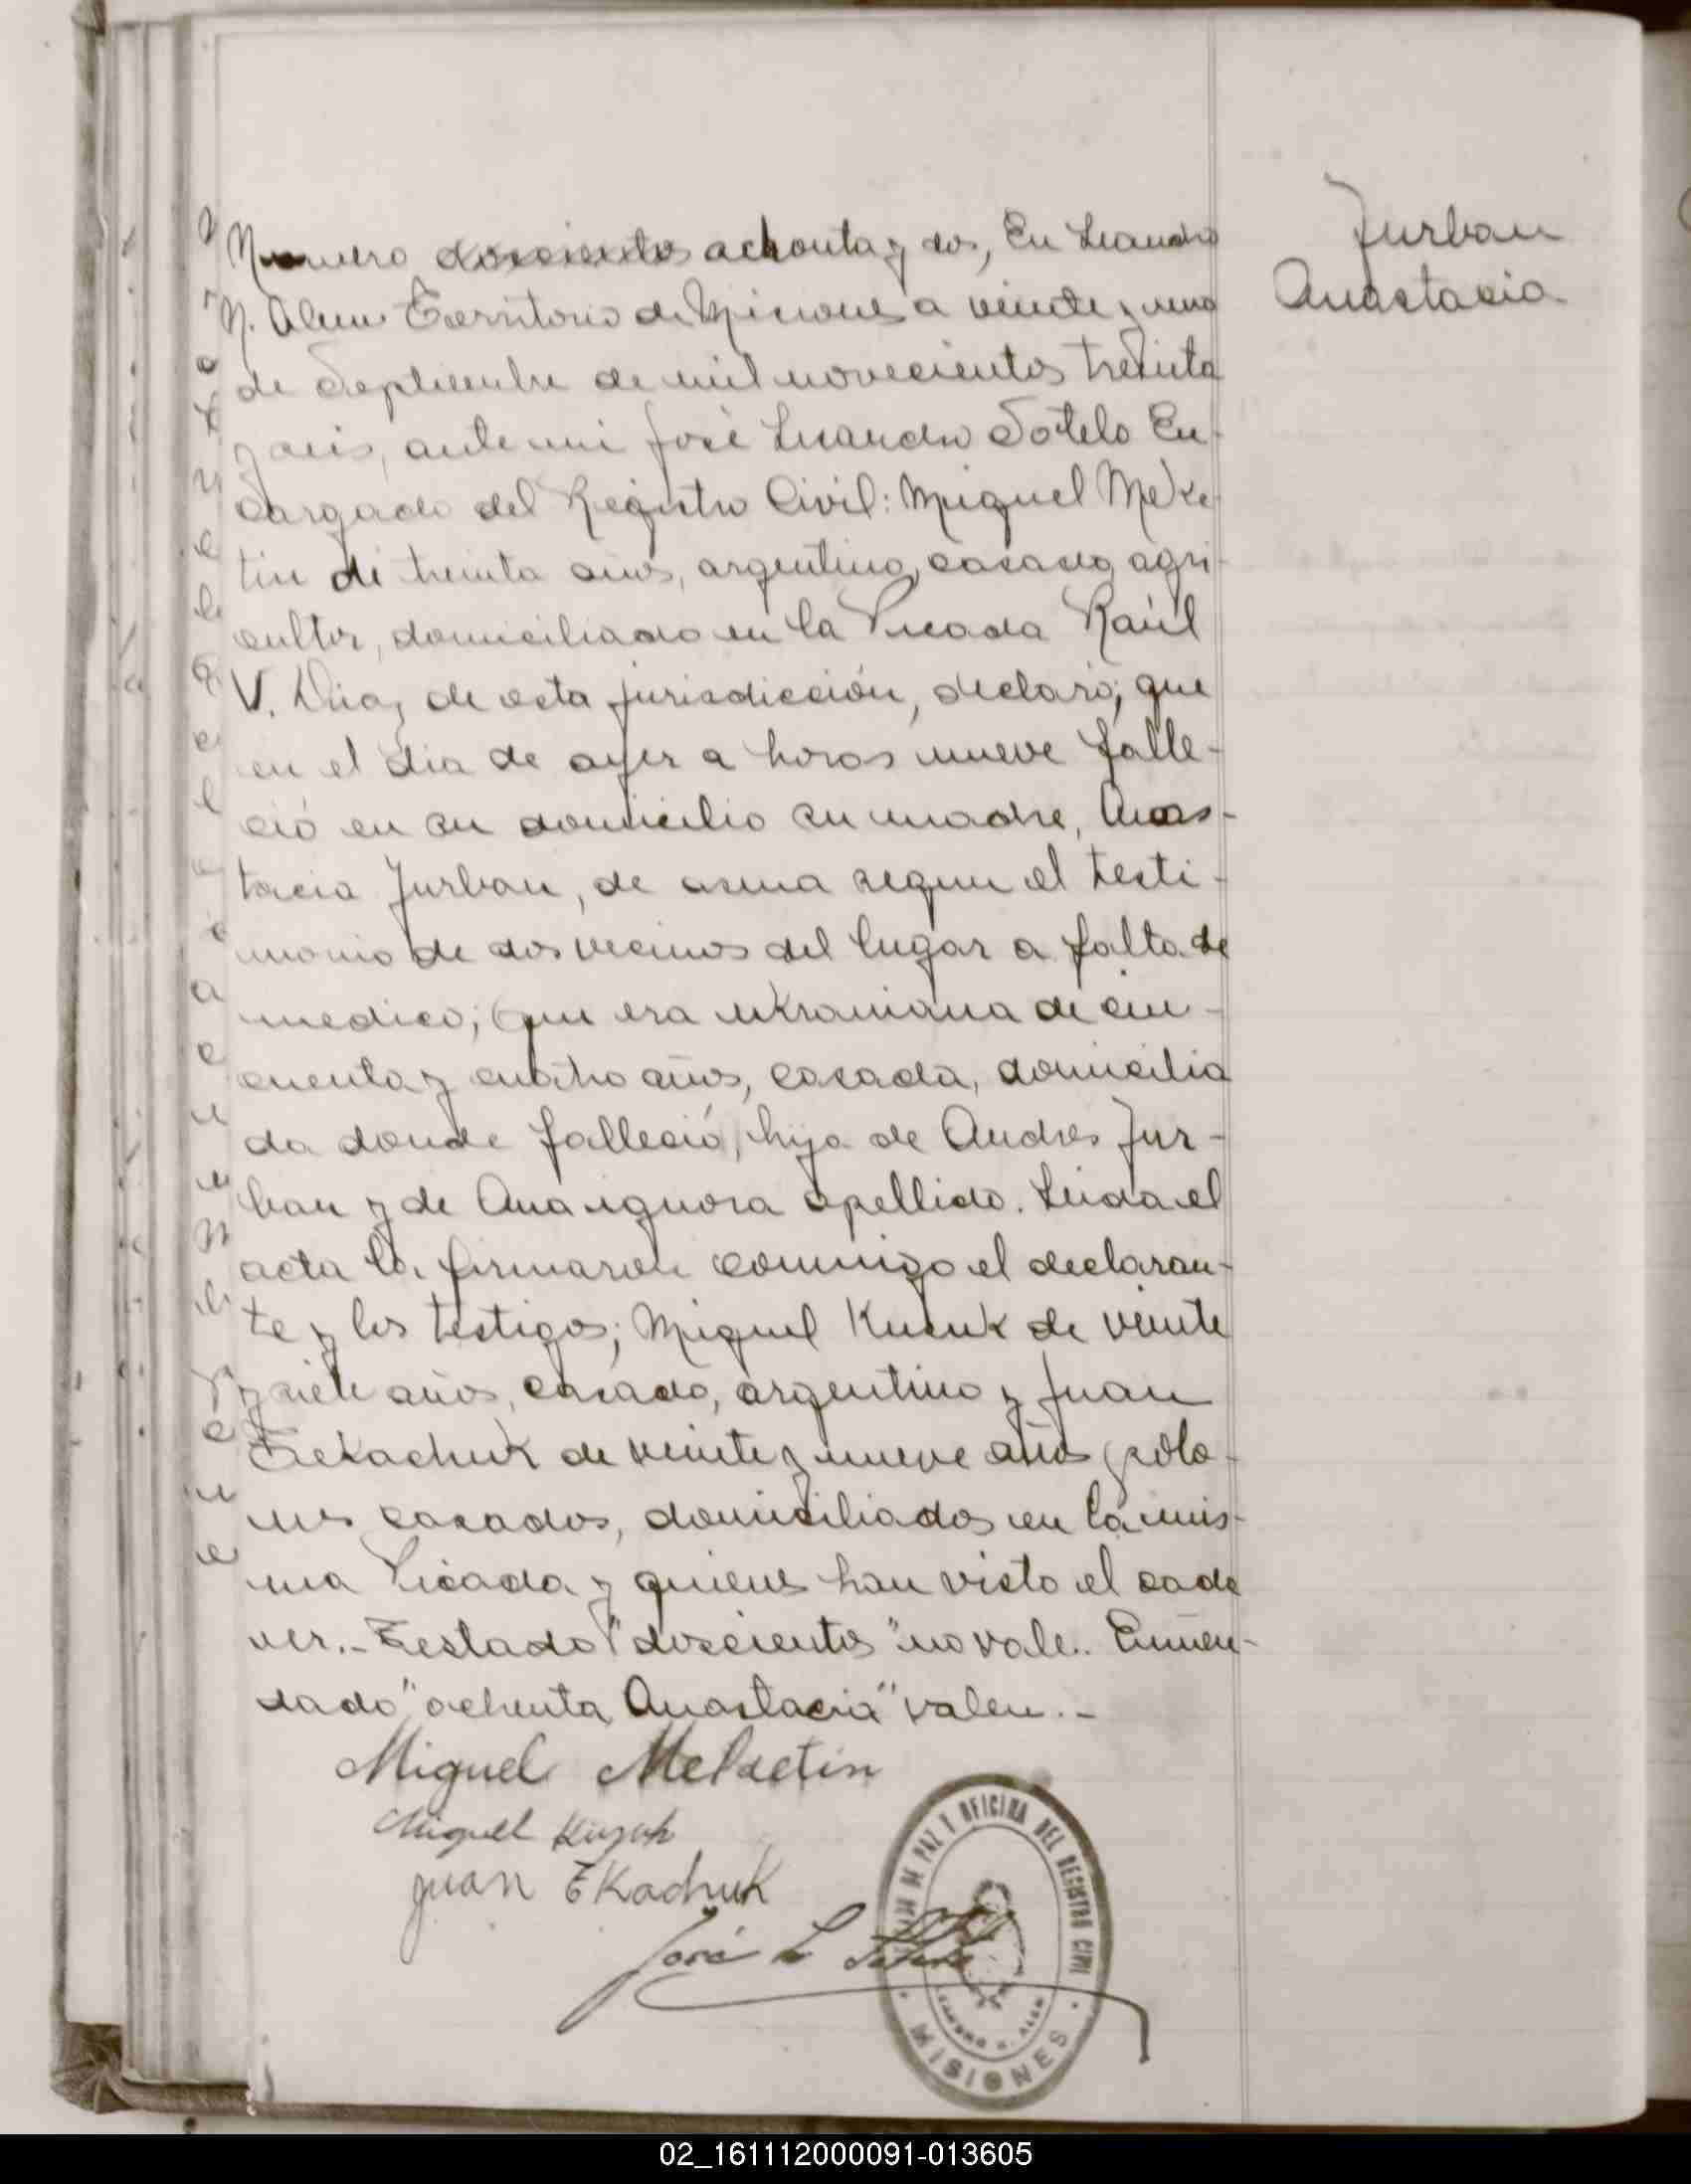 Jurban
Anastacia
Numero doscientos achenta y dos, En Leandro
N. Alem Territorio de Misiones a veinte y uno
de Septiembre de mil novecientos treinta
y seis, ante mi José Leandro Sotelo En-
cargado del Registro Civil: Miguel Meke-
tin de treinta años, argentino, casado, agri-
cultor, domiciliado en la Picada Raúl
V. Diaz de esta jurisdicción, declaró; que
en el dia de ayer a horas nueve falle-
ció en su domicilio su madre, Anas-
tacia Jurban, de asma segun el testi-
monio de dos vecinos del lugar a falta de
medico; que era ukraniana de cin-
cuenta y cuatro años, casada, domicilia
da donde falleció, hija de Andres Jur-
ban y de Ana ignora apellido. Leida el
acta la firmaron conmigo el declaran-
te y los testigos; Miguel Kusuk de veinte
y siete años, casado, argentino y Juan
de veinte y nueve años polo-
nes casados, domiciliados en la mis-
ma Picada y quienes han visto el cada
ver.- Testado "doscientos" no vale.. Enmen-
dado "ochenta, Anastacia" valen.-
Miguel
Miguel
Juan EKachuk
José L Sotelo
DE PAZ Y OFICINA DEL REGISTRO CIVIL
LEANDRO N. ALEM
MISIONES
02_161112000091-013605